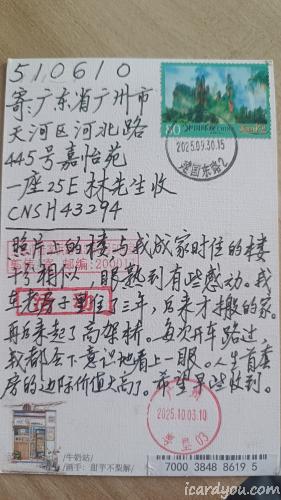 510610
寄:广东省广州市
天河区河北路
445号嘉怡苑
一座25E 林先生收
CNSH43294
80 中国邮政 CHINA
2025.09.30.15
建国东路2
照片上的楼与我成家时住的楼
相似 眼熟到有些感动。我
老房子里住了三年,后来才搬的家。
再后来起了高架桥。每次开车路过,
我都会下意识地看上一眼。人生首套
房的边际价值太高了。希望早些收到。
2025.10.03.10
牛奶站/
画手:甜芋不梨解/
7000 3848 8619 5
icardyou.com